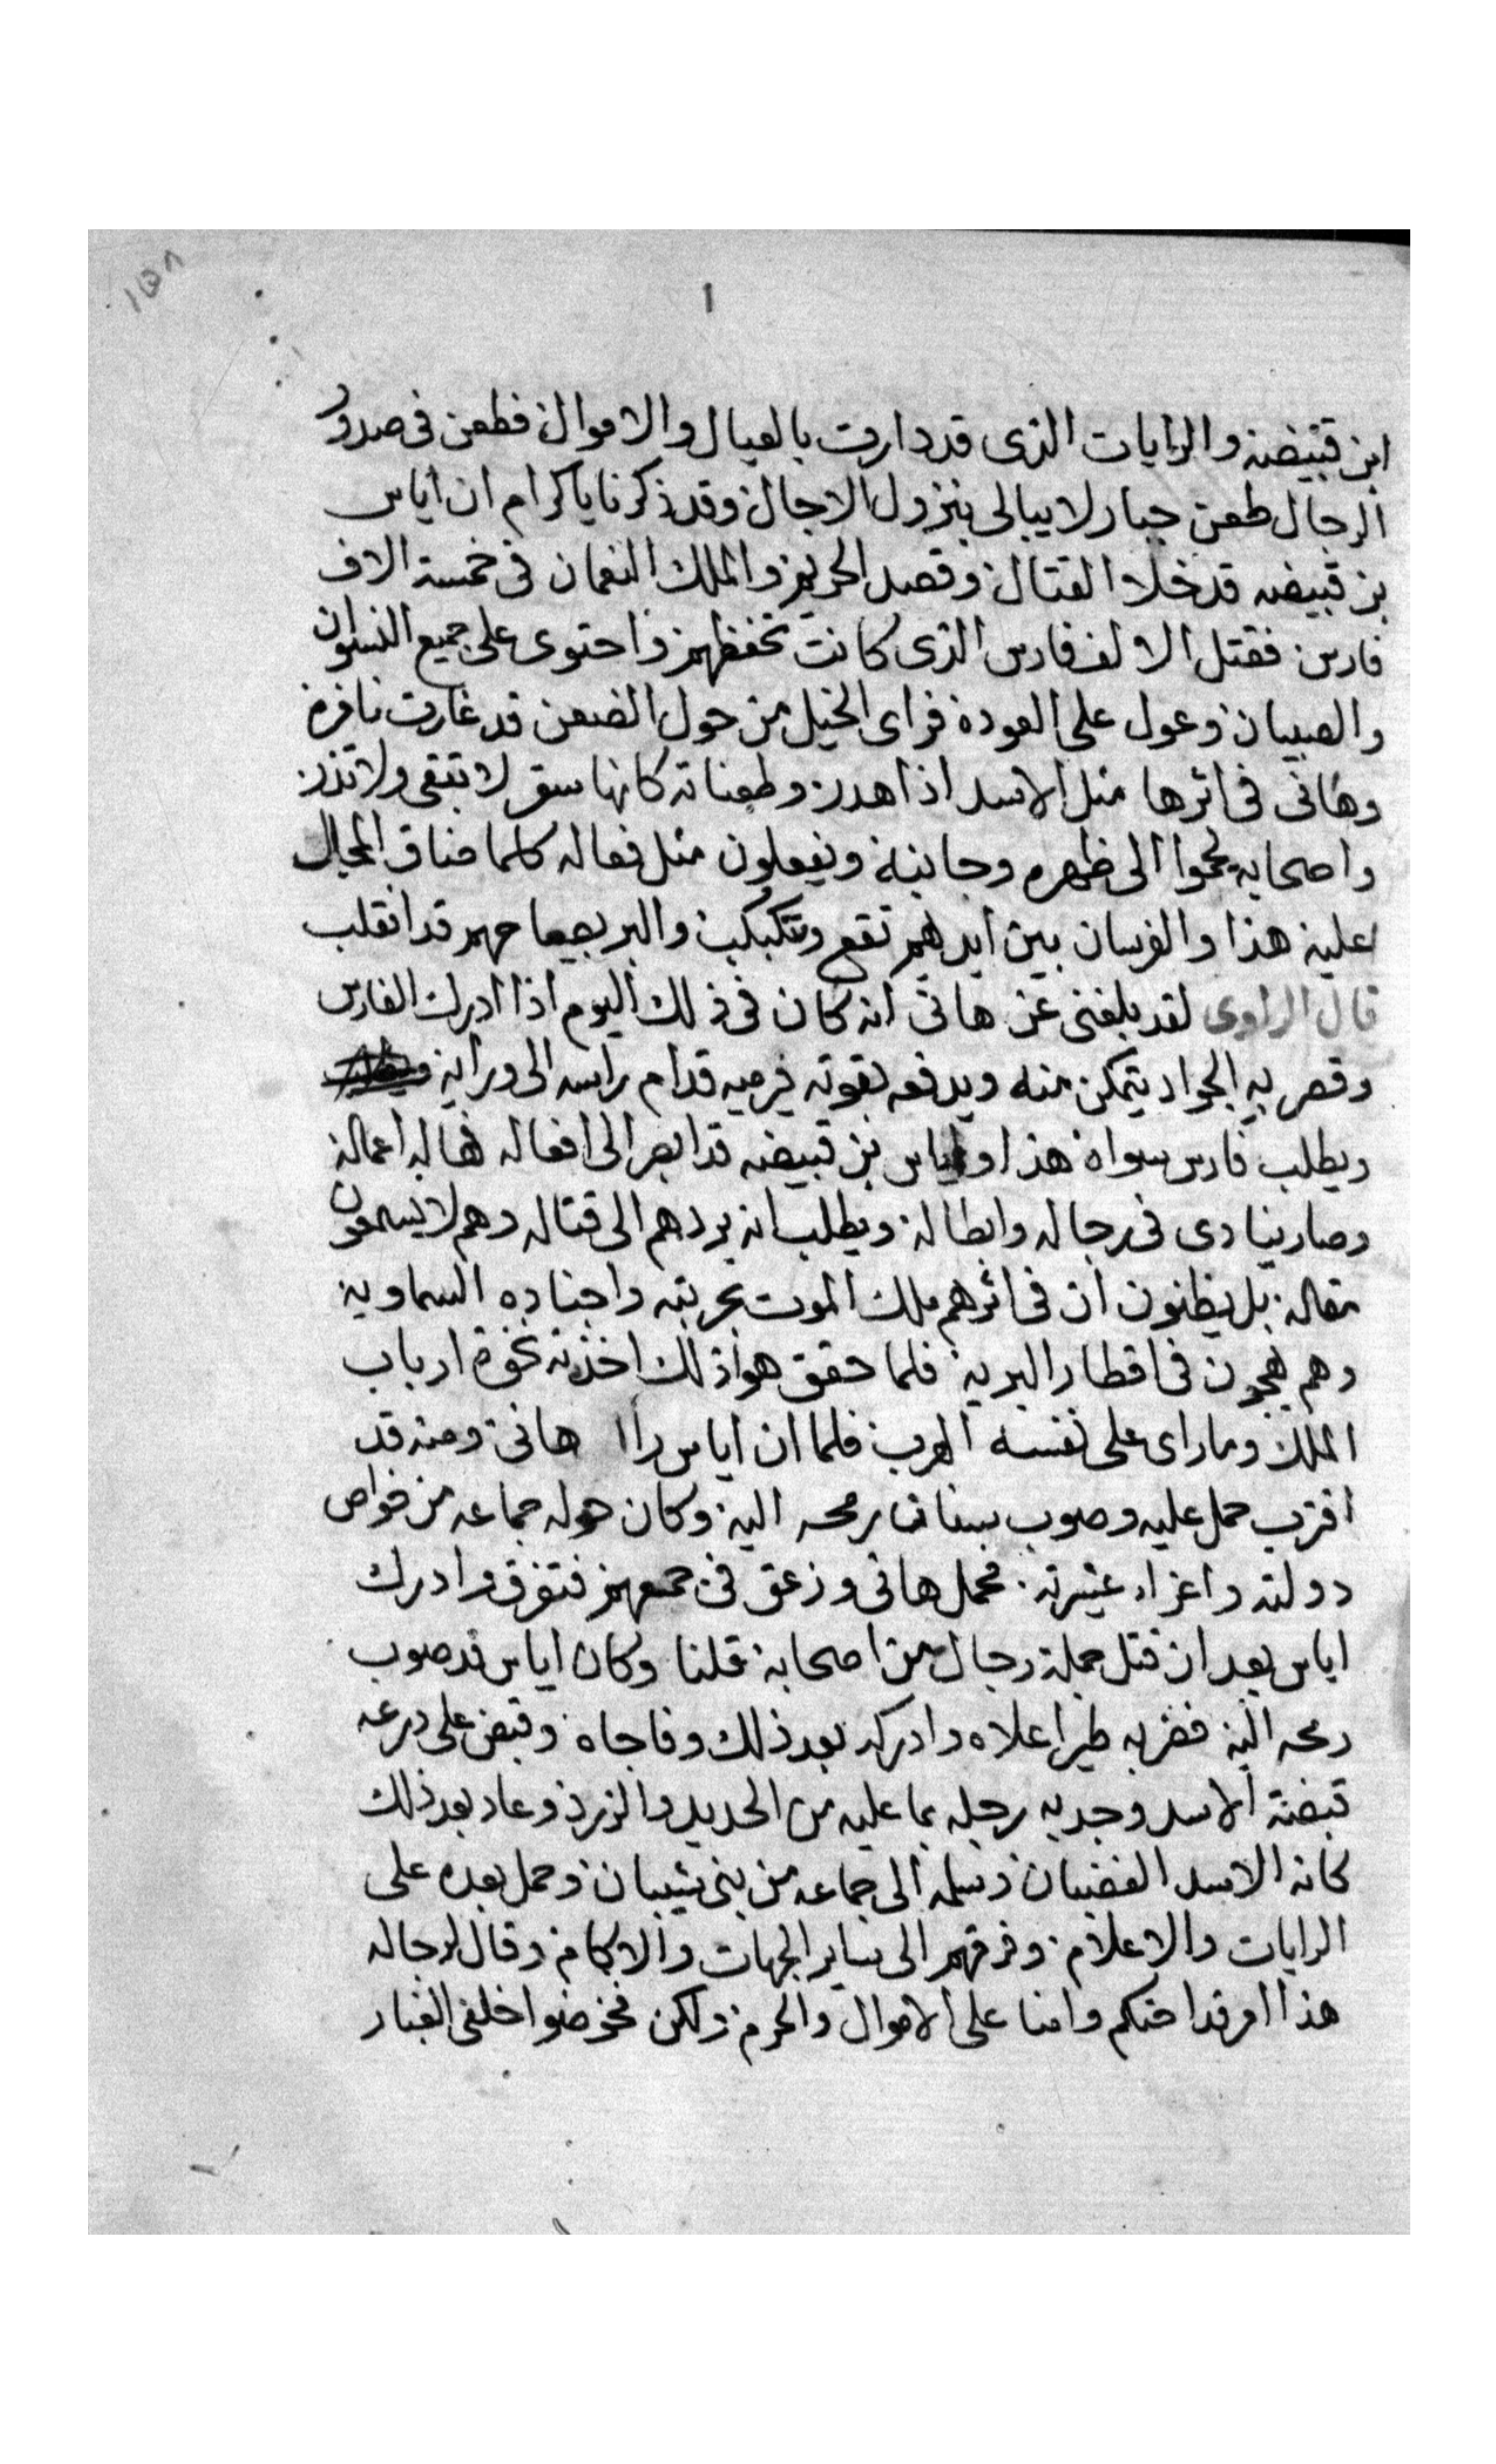 ١٥٨
١
ابن قبيضه والرايات الذى قد دارت بالعيال والاموال فطعن فى صدور
الرجال طعن جبار لا يبالى بنزول الاجال وقد ذكرنا يا كرام ان اياس
بن قبيضه قد خلا القتال وقصد الحريم والملك النعمان فى خمسة الاف
فارس فقتل الالف فارس الذى كانت تحفظهم واحتوى على جميع النسوان
والصبيان وعول على العوده فراى الخيل من حول الضعن قد غارت نافره
وهانى فى اثرها مثل الاسد اذا هدر وطعناته كانها سقر لا تبقى ولا تذر
واصحابه يحموا الى ظهره وجانبه ويفعلون مثل فعاله كلما ضاق المجال
عليه هذا والفرسان بين ايديهم تقع وتتكبكب والبر بصياحهم قد انقلب
قال الراوى لقد بلغنى عن هانى انه كان فى ذلك اليوم اذا ادرك الفارس
وقصر به الجواد يتمكن منه ويدفعه بقوته فيرميه قدام راسه الى ورايه
ويطلب فارس سواه هذا واياس بن قبيضه قد ابصر الى افعاله فهاله اعماله
وصار ينادى فى رجاله وابطاله ويطلب ان يردهم الى قتاله وهم لا يسمعون
مقاله بل يظنون ان فى اثرهم ملك الموت بحربته واجناده السماويه
وهم يهجون فى اقطار البريه فلما حقق هو اذلك اخذته نخوة ارباب
الملك وما راى على نفسه الهرب فلما ان اياس راا هانى ومنه قد
اقترب حمل عليه وصوب سنان رمحه اليه وكان حوله جماعه من خواص
دولته واعزاء عشيرته فحمل هانى وزعق فى جمعهم فتفرق وادرك
اياس بعد ان قتل جملة رجال من اصحابه قلنا وكان اياس قد صوب
رمحه اليه فضربه طير اعلاه وادركه بعد ذلك وفاجاه وقبض على درعه
قبضة الاسد وجد به رجله بما عليه من الحديد والزرد وعاد بعد ذلك
كانه الاسد الغضبان وسلمه الى جماعه من بنى شيبان وحمل بعده على
الرايات والاعلام وفرقهم الى ساير الجهات والاكام وقال لرجاله
هذا امر قد احكم وامنا على الاموال والحرم ولكن فخوضوا خلفى الغبار